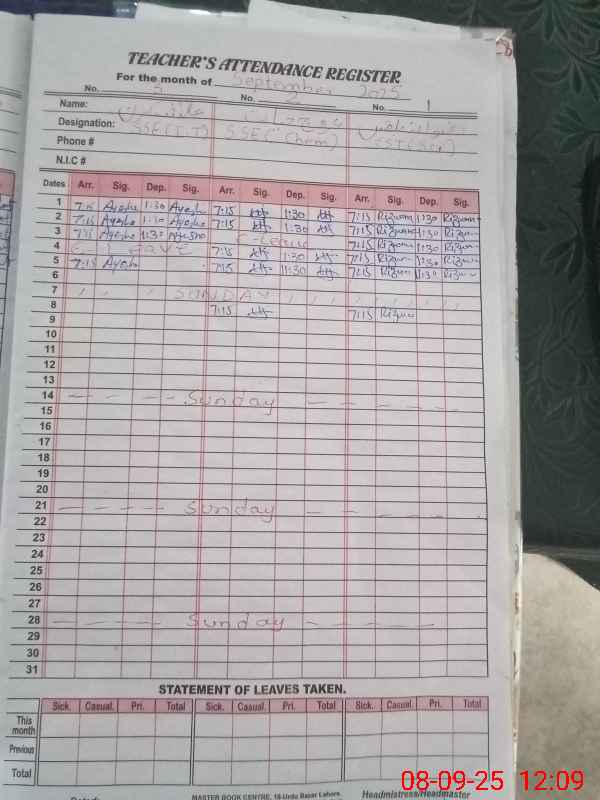 TEACHER'S ATTENDANCE REGISTER
For the month of September 2025
No. 3 No. 2 No. 1
Name:
Designation: SSE(I.T) SSE(Chem) SST(Sci)
Phone #
N.I.C #
Dates Arr. Sig. Dep. Sig. Arr. Sig. Dep. Sig. Arr. Sig. Dep. Sig.
1 7:15 Ayesha 1:30 Ayesha 7:15 1:30 7:15 Rizwan 1:30 Rizwan
2 7:15 Ayesha 1:30 Ayesha 7:15 1:30 7:15 Rizwan 1:30 Rizwan
3 7:15 Ayesha 1:30 Ayesha C-Leave 7:15 Rizwan 1:30 Rizwan
4 Leave 7:15 1:30 7:15 Rizwan 1:30 Rizwan
5 7:15 Ayesha 7:15 11:30 7:15 Rizwan 11:30 Rizwan
6
7 SUNDAY
8 7:15 7:15 Rizwan
9
10
11
12
13
14 Sunday
15
16
17
18
19
20
21 Sunday
22
23
24
25
26
27
28 Sunday
29
30
31
STATEMENT OF LEAVES TAKEN.
Sick. Casual. Pri. Total Sick. Casual. Pri. Total Sick. Casual. Pri. Total
This month
Previous
Total
MASTER BOOK CENTRE, 16-Urdu Bazar Lahore.
Headmistress/Headmaster
08-09-25 12:09